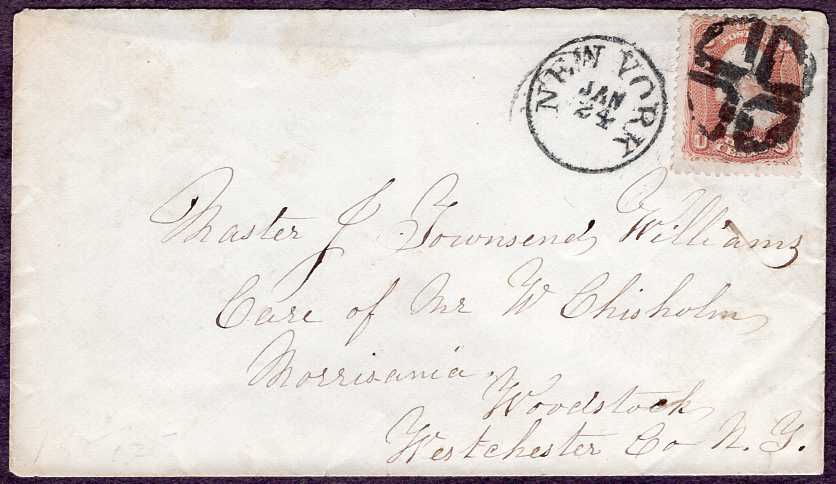 NEW YORK
JAN
24
POSTA
CENTS
Master J. Townsend Williams
Care of Mr W Chisholm
Morrisania.
Woodstock
Westchester Co N. Y.